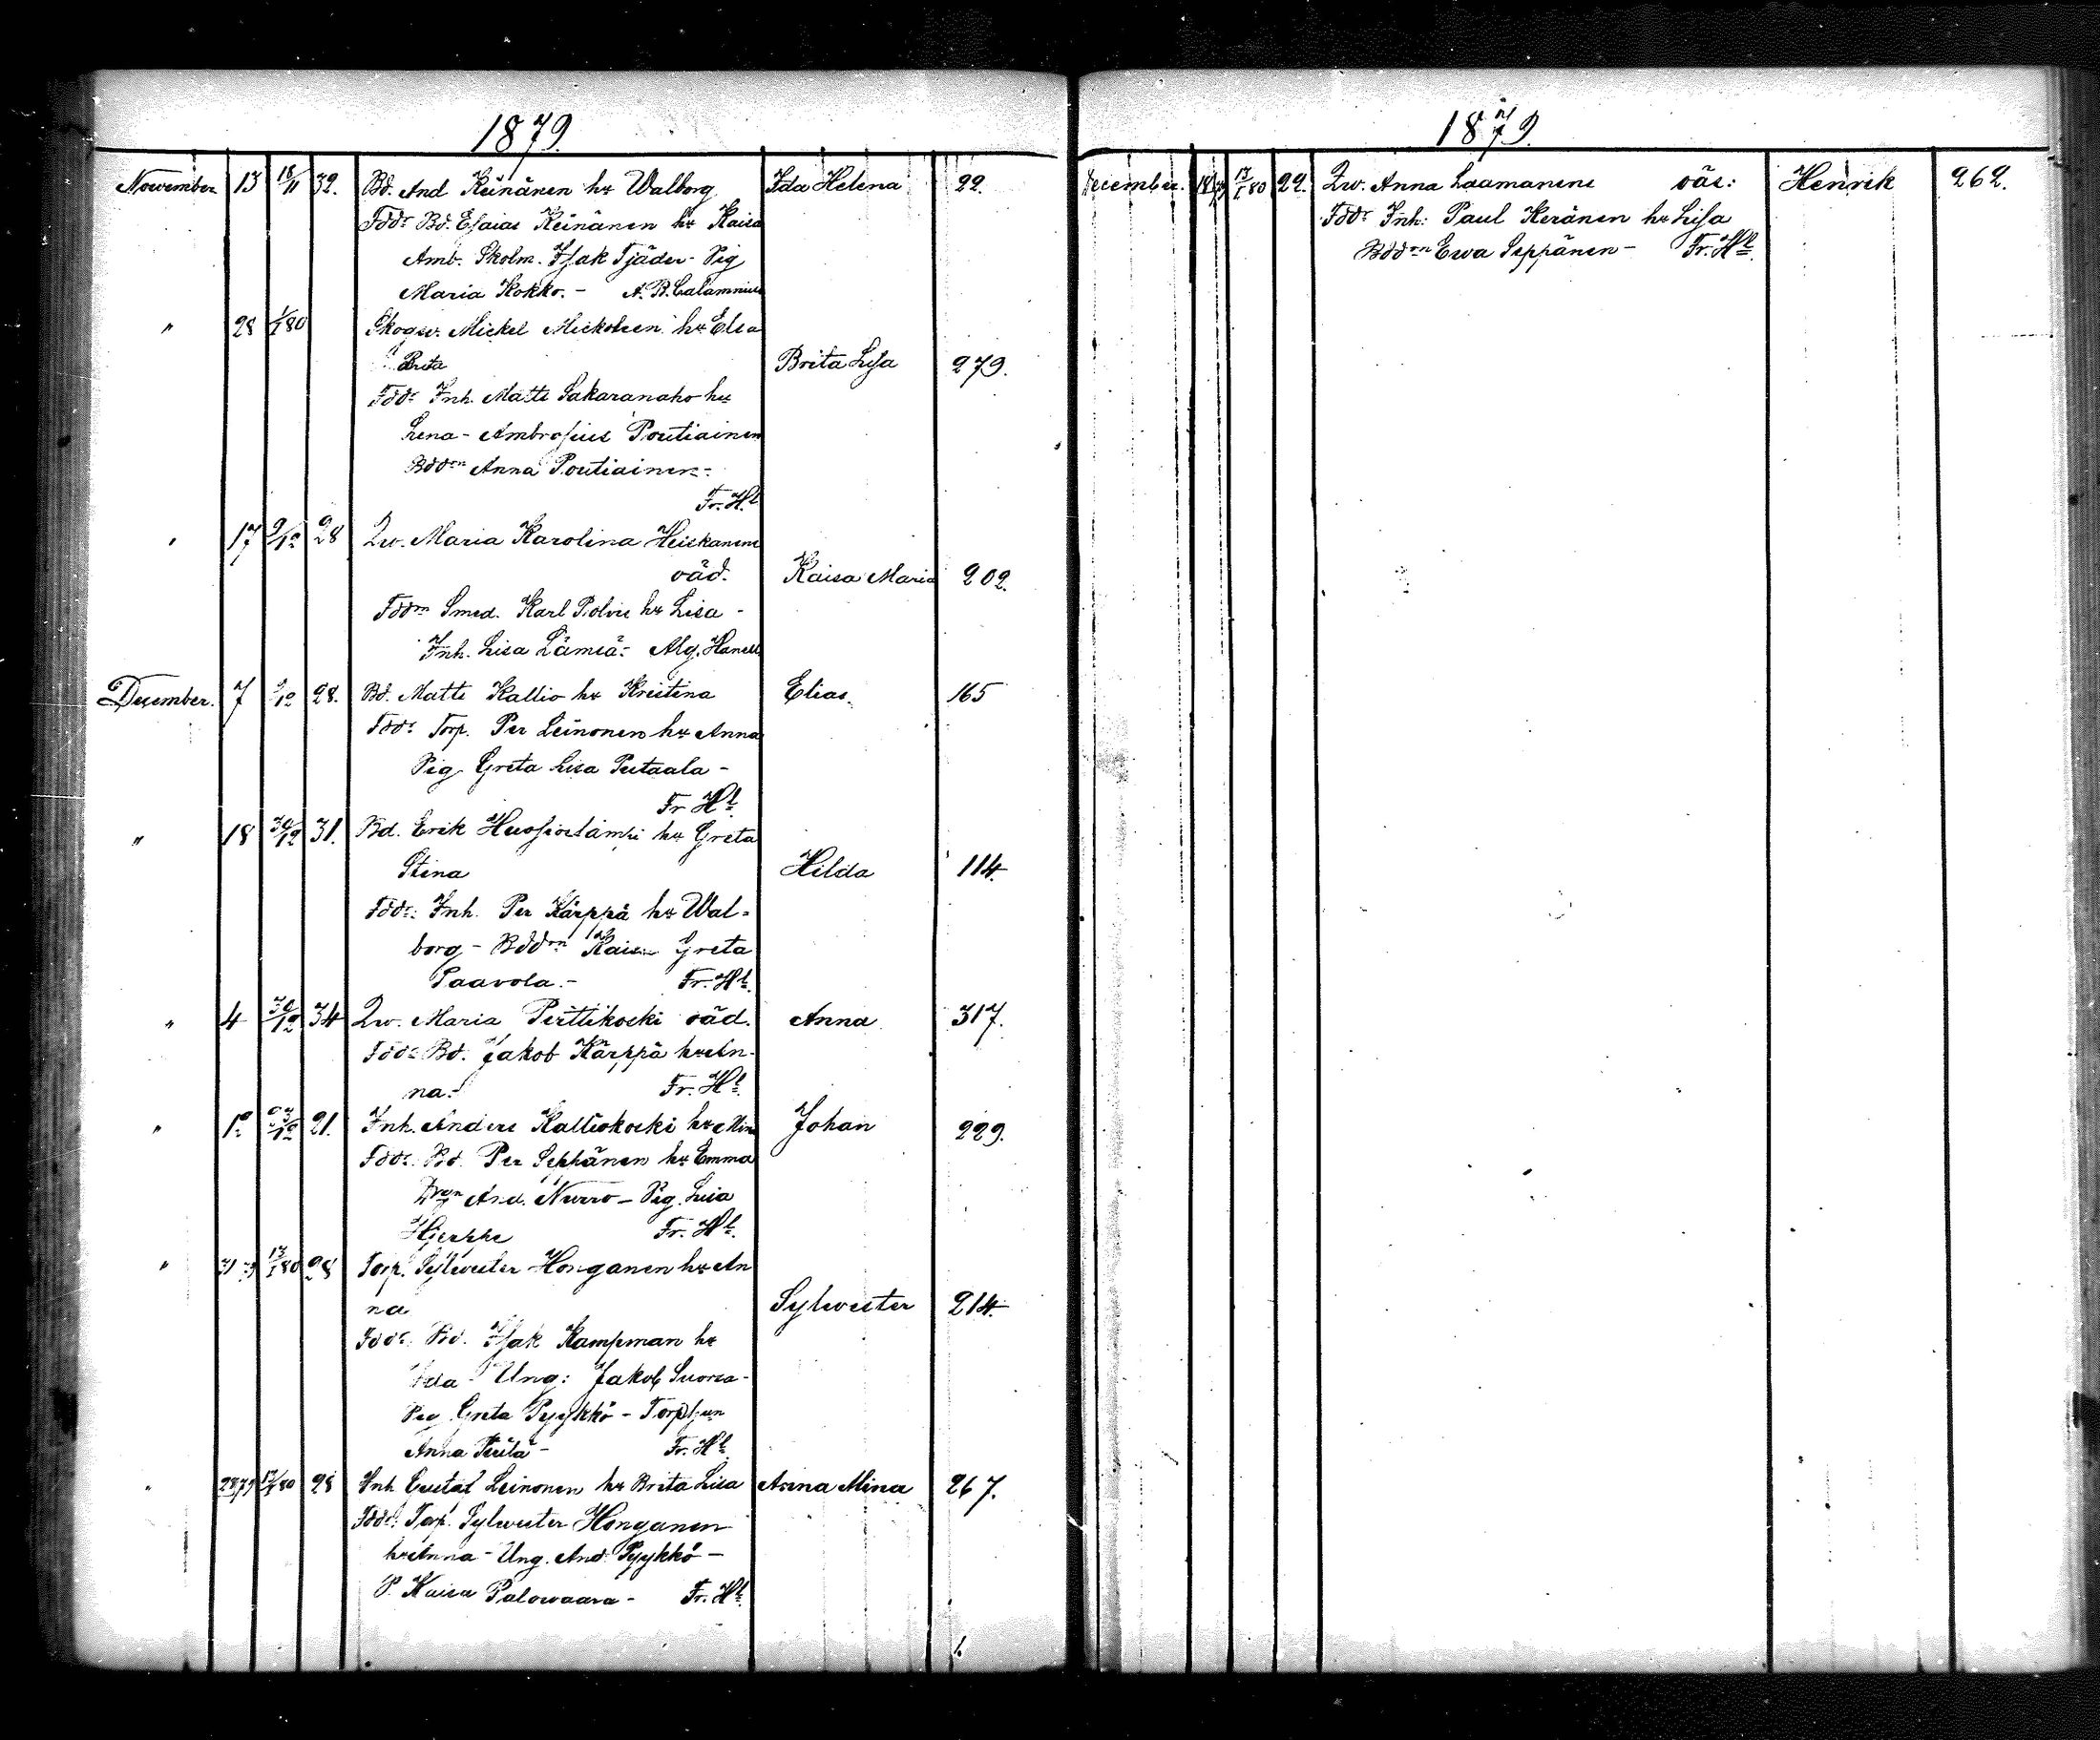 1879.
November 13 18/11 32. Bd. And Keinänen hu Walborg Ida Helena 22.
Fddr Bd. Esaias Keinänen hu Kaisa
Amb. Skolm. Isak Tjäder - Pig
Maria Kokko. - A. B. Calamnius
" 28 1/1 80 Skogsv. Mickel Mickelsen hu Elsa
Brita Brita Lisa 279.
Fddr Inh. Matts Sakaranaho hu
Lena - Ambrosius Poutiainen
Bddrn Anna Poutiainen -
Fr. Hl.
" 17 9/12 28 Qv. Maria Karolina Heiskanens
oäd. Kaisa Maria 202.
Fddrn Smed. Karl Polvi hu Lisa -
Inh. Lisa Lämsä - Alg. Hanell
December. 7 9/12 28. Bd. Matts Kallio hu Kristina Elias. 165
Fddr Torp. Per Leinonen hu Anna
Pig. Greta Lisa Pietaala -
Fr Hl.
" 18 30/12 31. Bd. Erik Huosiuslämpi hu Greta
Stina Hilda 114.
Fddr: Inh. Per Kärppä hu Wal-
borg - Bddrn Kaisa Greta
Paavola. - Fr. Hl.
" 4 30/12 34 Qv. Maria Perttikoski oäd. Anna 317.
Fddr Bd. Jakob Kärppä hu An-
na - Fr. Hl.
" 12 21. Inh. Anders Kalliokoski hu Mina Johan 229.
Fddr. Bd. Per Seppänen hu Emma
Drgn And. Nurro - Pig. Lisa
Hjerppe Fr. Hl.
" 13/1 80 28 Torp. Sylvester Honganen hu An
na Sylvester 214.
Fddr. Bd. Isak Kampman hu
Ida - Ung: Jakob Suorsa -
Pig. Greta Pyykkö - Torp
Anna - Fr. Hl.
" 28/79 28 Inh Gustaf Leinonen hu Brita Lisa Anna Mina 267.
Fddr: Torp. Sylvester Honganen
hu Anna - Ung. And. Pyykkö -
P. Kaisa Palowaara - Fr. Hl.
1879.
December. 13/1 80 22. Qv. Anna Laamanens oäs: Henrik 262.
Fddr Inh: Paul Keränen hu Lisa
Bddrn Ewa Seppänen - Fr. Hl.